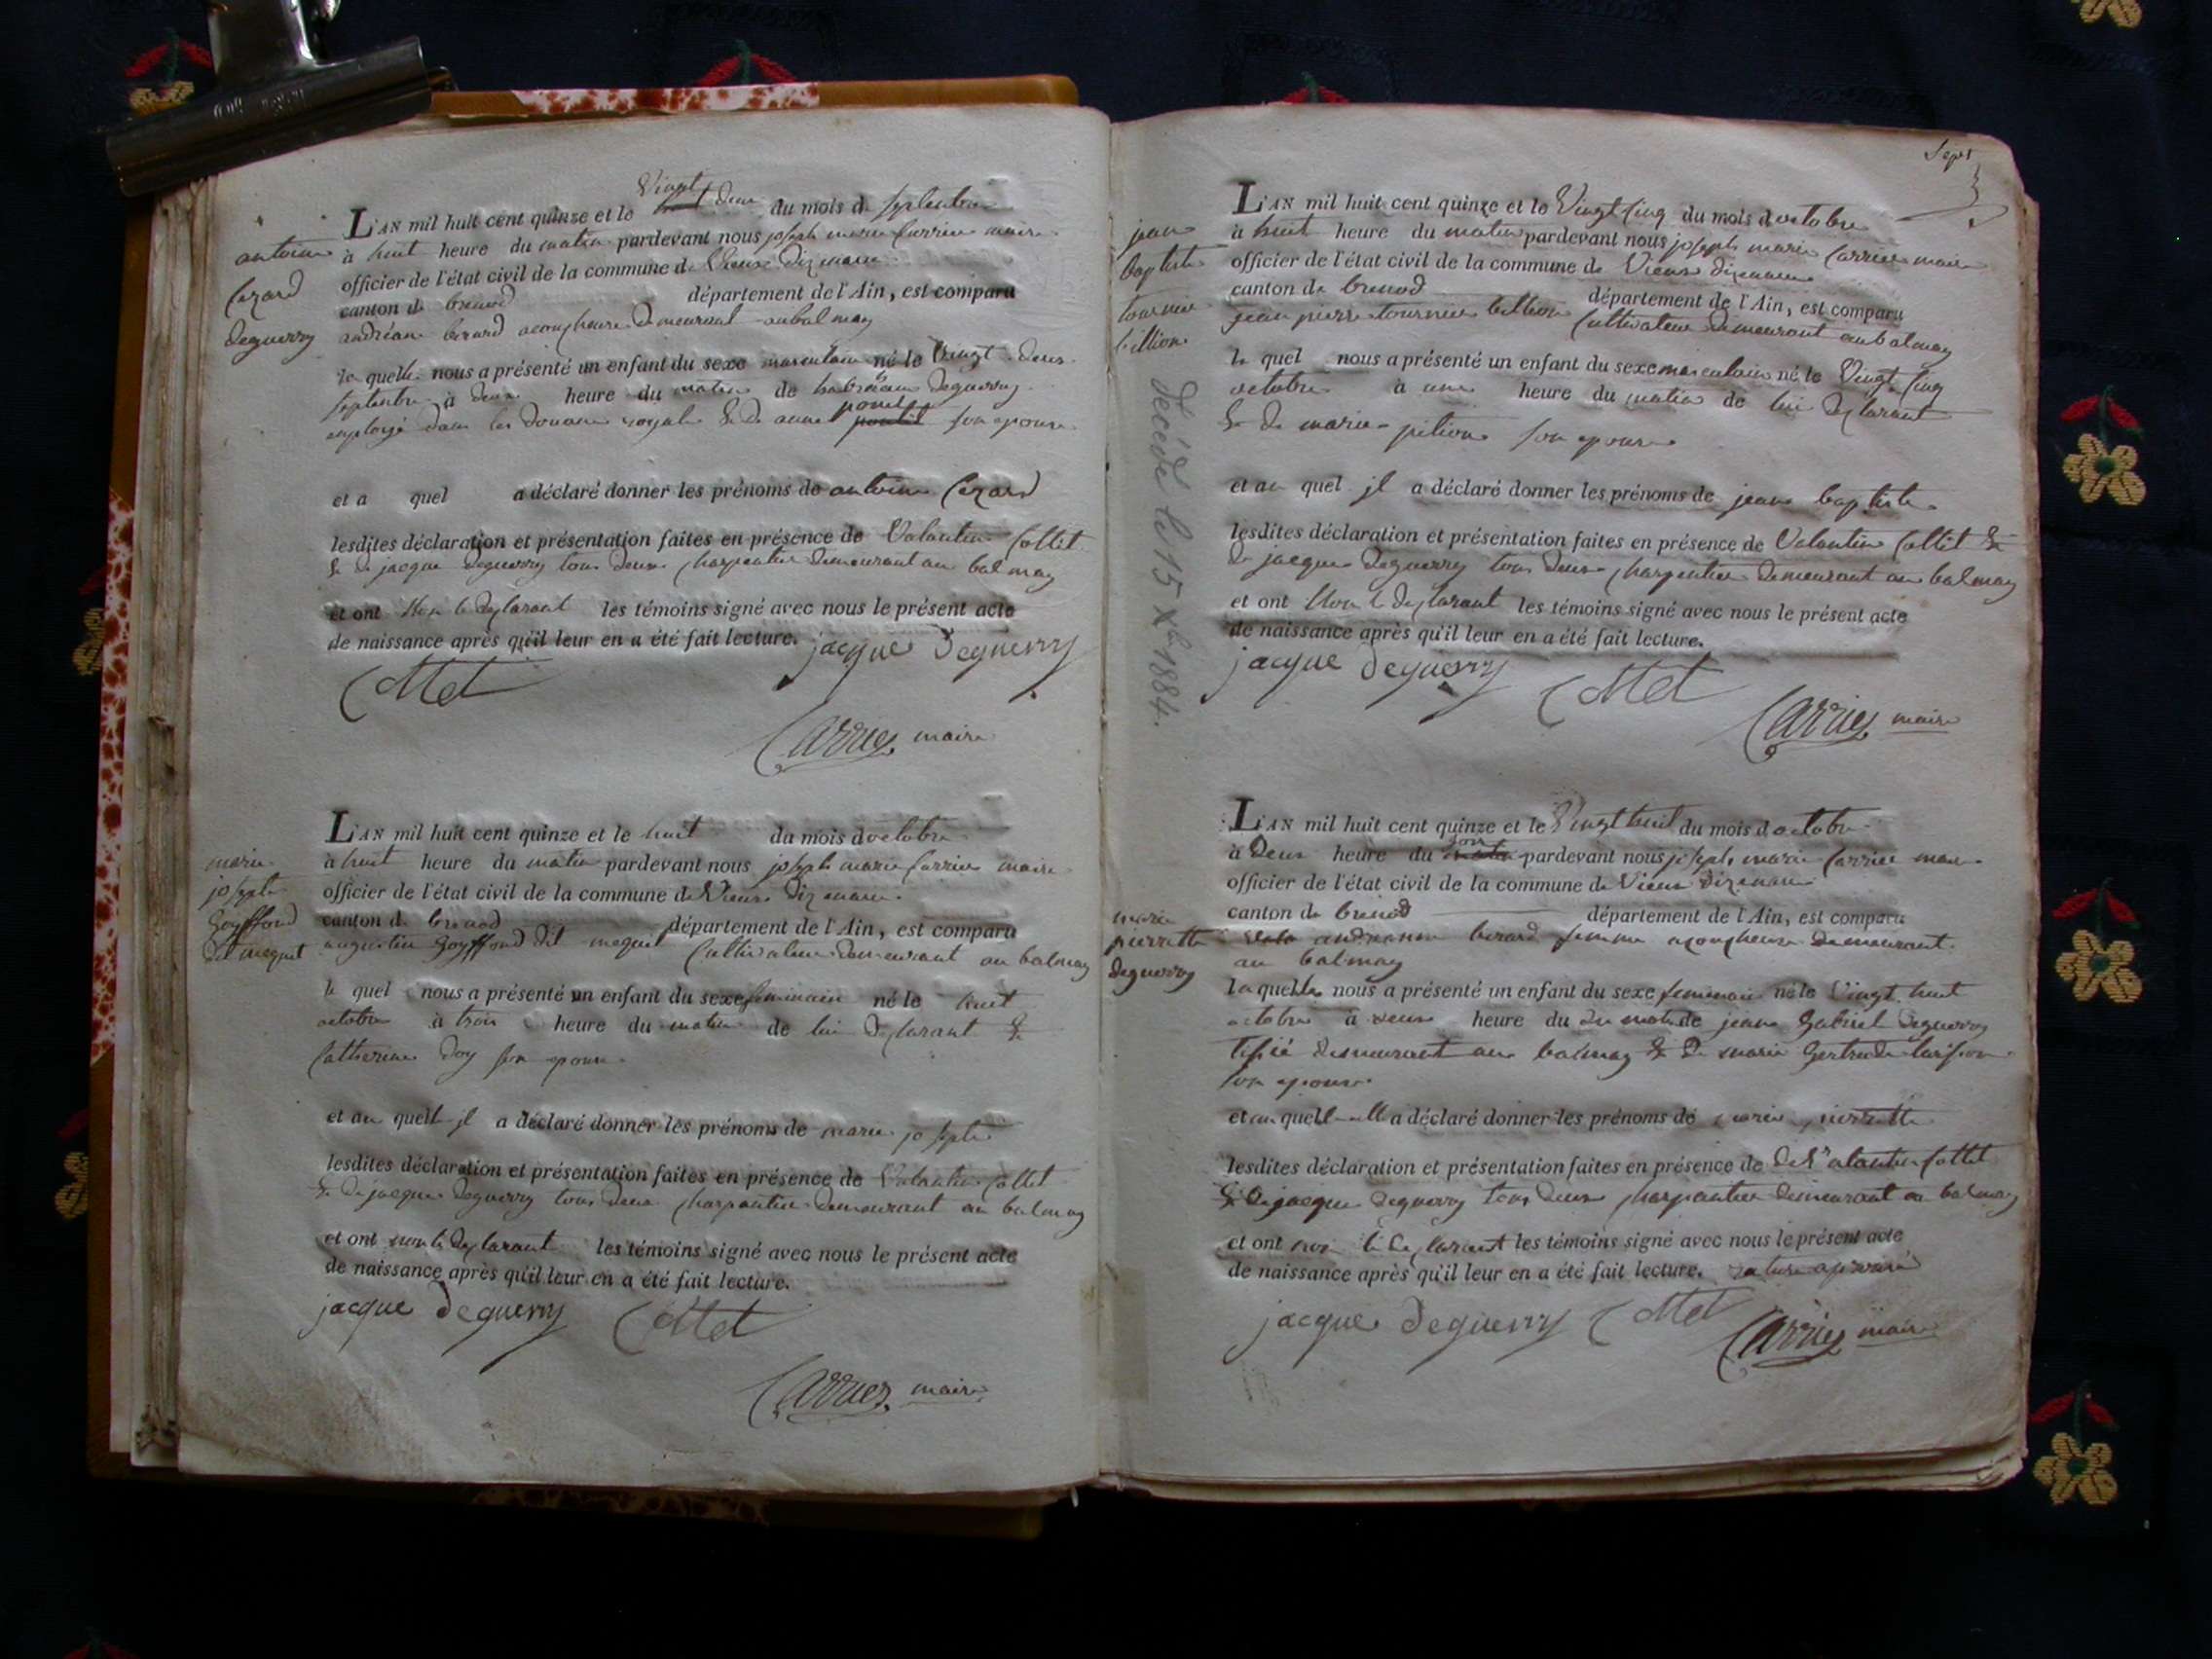 antoine
Cezard
deguerry
L'AN mil huit cent quinze et le Vingt deux du mois de septembre
à huit heure du matin pardevant nous joseph marie Carrier maire
officier de l'état civil de la commune de Vieux dizenave
canton de brenod département de l'Ain, est comparu
andréane berard acoucheuse demeurant au balmay
la quelle nous a présenté un enfant du sexe masculain né le Vingt deux
septembre à deux heure du matin de deguerry
employé dans les douane royale & de anne son epouse
et a quel a déclaré donner les prénoms de antoine Cezard
lesdites déclaration et présentation faites en présence de Valantin Collet
& de jacque deguerry tous deux charpentier demeurant au balmay
et ont Non le declarant les témoins signé avec nous le présent acte
de naissance après qu'il leur en a été fait lecture. jacque Deguerry
Collet
Carrier maire
marie
joseph
Goyffond
dit mequet
L'AN mil huit cent quinze et le huit du mois doctobre
à huit heure du matin pardevant nous joseph marie Carrier maire
officier de l'état civil de la commune de Vieux dizenave
canton de brenod département de l'Ain, est comparu
augustin Goyffond dit mequet Cultivateur demeurant au balmay
le quel nous a présenté un enfant du sexe feminain né le huit
octobre à trois heure du matin de lui declarant &
Catherine Doy son epouse
et au quell jl a déclaré donner les prénoms de marie josephe
lesdites déclaration et présentation faites en présence de Valantin Collet
& de jacque deguerry tous deux charpentier demeurant au balmay
et ont non le declarant les témoins signé avec nous le présent acte
de naissance après qu'il leur en a été fait lecture.
jacque deguerry Collet
Carrier maire
Sept
jean
baptiste
tournier
billion
décédé le 15 Xbre 1884.
L'AN mil huit cent quinze et le Vingt Cinq du mois doctobre
à huit heure du matin pardevant nous joseph marie Carrier maire
officier de l'état civil de la commune de Vieux dizenave
canton de brenod département de l'Ain, est comparu
jean pierre tournier billion Cultivateur demeurant au balmay
le quel nous a présenté un enfant du sexe masculain né le Vingt Cinq
octobre à une heure du matin de lui declarant
& de marie pition son epouse
et au quel jl a déclaré donner les prénoms de jean baptiste
lesdites déclaration et présentation faites en présence de Valantin Collet &
de jacque deguerry tous deux charpentier demeurant au balmay
et ont Non le declarant les témoins signé avec nous le présent acte
de naissance après qu'il leur en a été fait lecture.
jacque deguerry Collet
Carrier maire
marie
pierrette
deguerry
L'AN mil huit cent quinze et le Vingt huit du mois doctobre
à Deux heure du soir pardevant nous joseph marie Carrier maire
officier de l'état civil de la commune de Vieux dizenave
canton de brenod département de l'Ain, est comparu
andreanne berard femme acoucheuse demeurant
au balmay
laquelle nous a présenté un enfant du sexe feminain né le Vingt huit
octobre à deux heure du du matin de jean Gabriel deguerry
demeurant au balmay & de marie Gertrude
son epouse
et au quell elle a déclaré donner les prénoms de marie pierrette
lesdites déclaration et présentation faites en présence de de Valantin Collet
& de jacque deguerry tous deux charpentier demeurant au balmay
et ont non le declarant les témoins signé avec nous le présent acte
de naissance après qu'il leur en a été fait lecture. rature aprouvé
jacque deguerry Collet Carrier maire